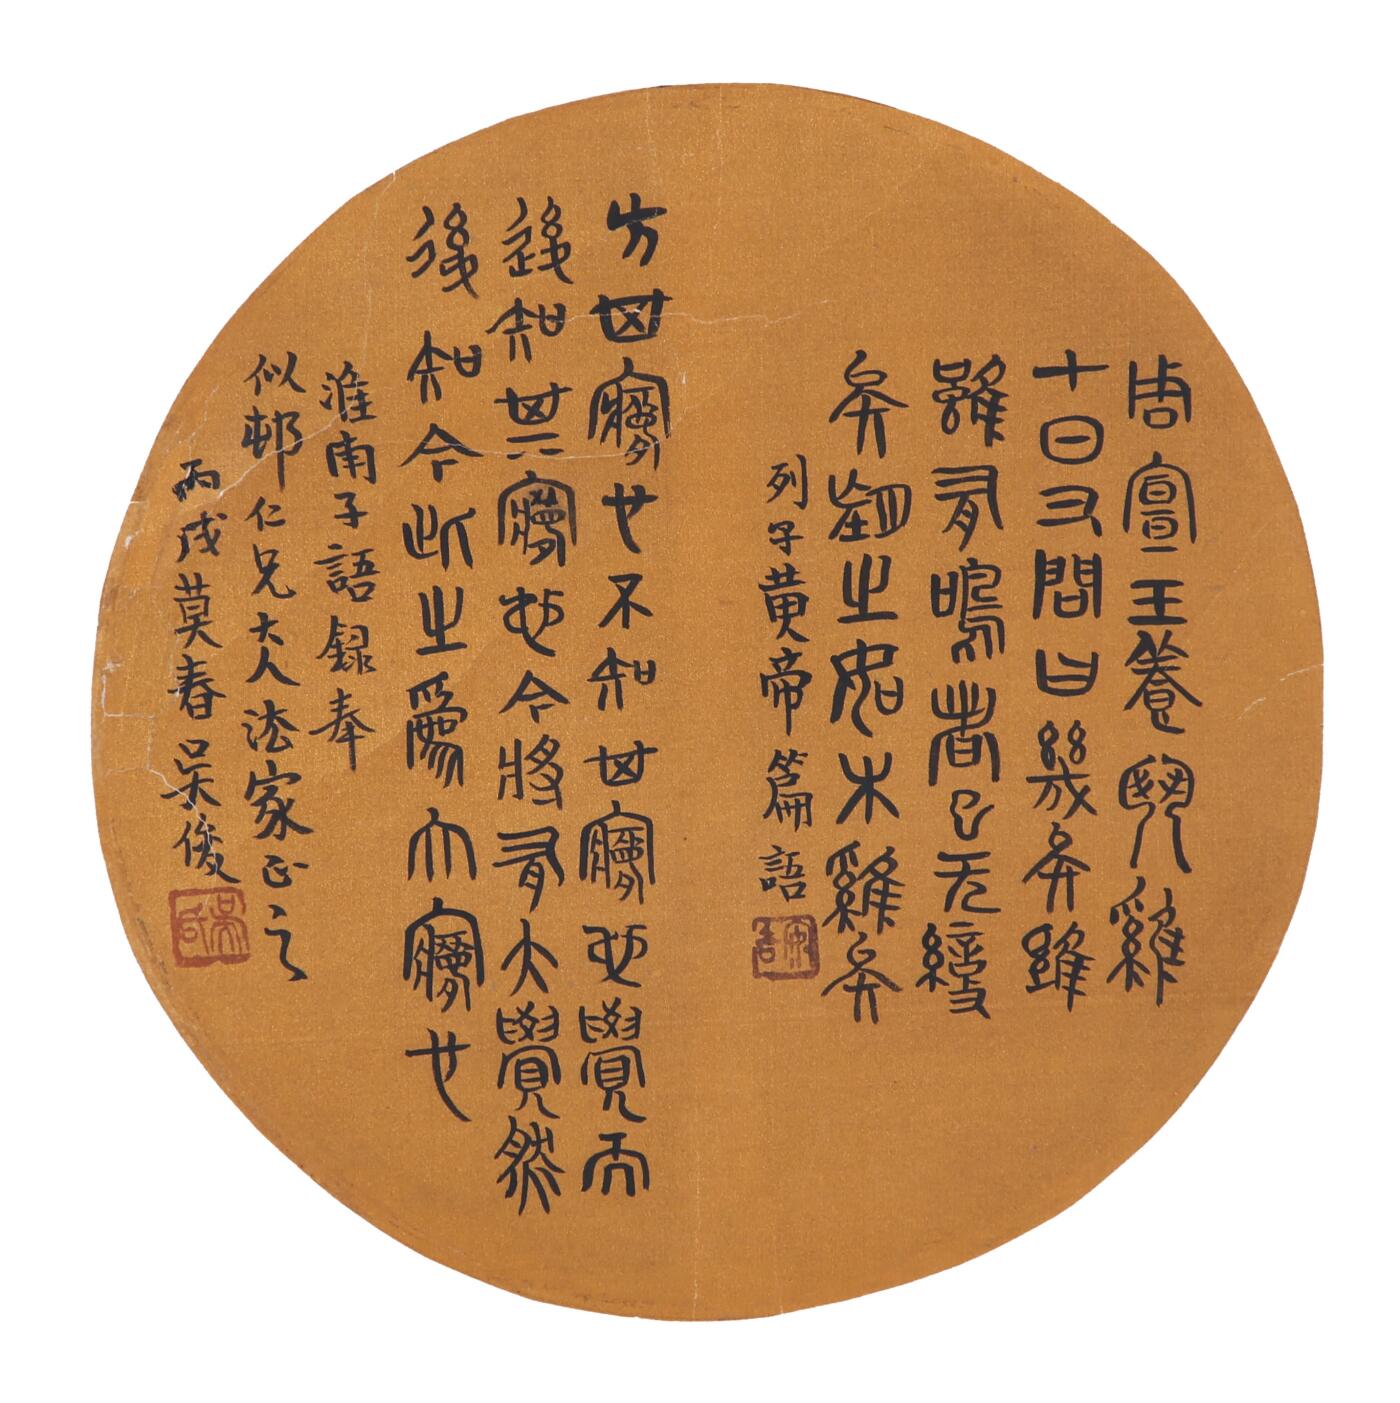 周宣王養鬥雞
十日又問曰幾矣雞
雖有鳴者已无變
矣望之似木雞矣
列子黄帝篇語
方其寢也不知其寢也覺而
後知其寢也今將有大覺然
後知今此之爲大寢也
淮南子語録奉
似邨仁兄大人法家正之
丙戌莫春吴俊